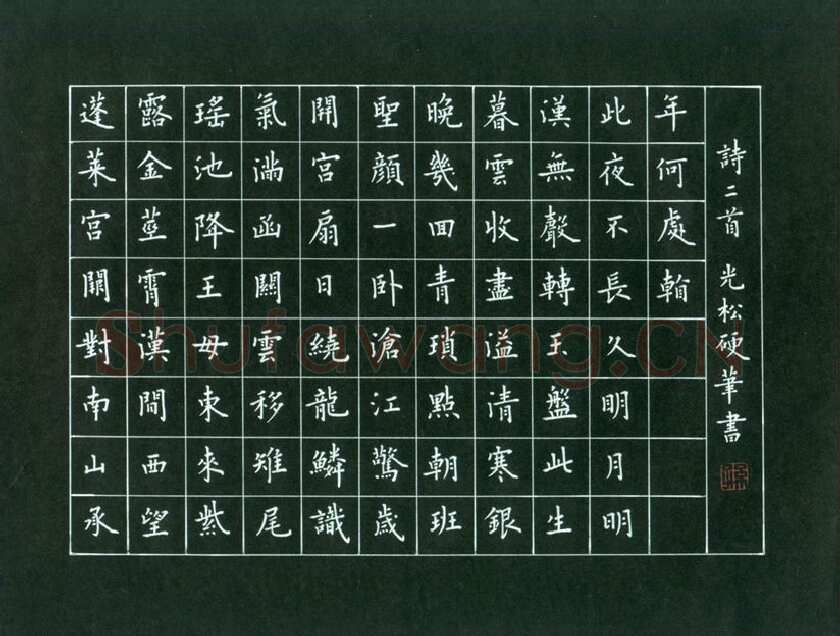 蓬萊宮闕對南山承
露金莖霄漢間西望
瑤池降王母東來紫
氣滿函關雲移雉尾
開宮扇日繞龍鱗識
聖顏一卧滄江驚歲
晚幾回青瑣點朝班
暮雲收盡溢清寒銀
漢無聲轉玉盤此生
此夜不長久明月明
年何處翰
詩二首 光松硬筆書
Shufawang.CN